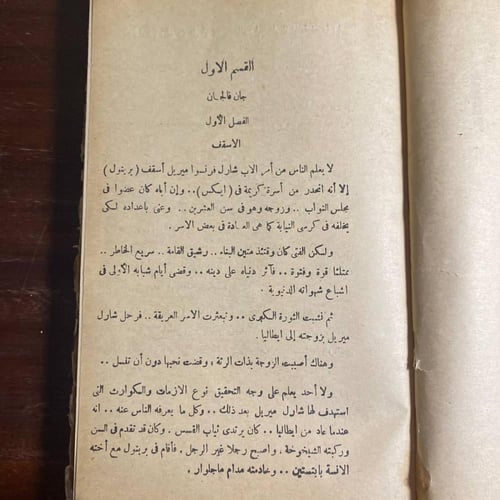 القسم الاول
جان فالجان
الفصل الأول
الاسقف
لا يعلم الناس من أمر الاب شارل فرنسوا ميريل أسقف ( برينول )
إلا أنه انحدر من أسرة كريمة فى ( ايكس ) .. وإن أباه كان عضوا فى
مجلس النواب .. وزوجه وهو فى سن العشرين .. وعنى باعداده لكى
يخلفه فى كرسى النيابة كما هى العادة فى بعض الاسر .
ولكن الفتى كان وقتئذ متين البناء .. رشيق القامة .. سريع الخاطر ..
ممتلئا قوة وفتوة .. فآثر دنياه على دينه .. وقضى أيام شبابه الأولى فى
اشباع شهواته الدنيوية .
ثم نشبت الثورة الكبرى .. وتبعثرت الاسر العريقة .. فرحل شارل
ميريل بزوجته إلى ايطاليا .
وهناك أصيبت الزوجة بذات الرئة ، وقضت نحبها دون أن تنسل ..
ولا أحد يعلم على وجه التحقيق نوع الازمات والكوارث التى
استهدف لها شارل ميريل بعد ذلك .. وكل ما يعرفه الناس عنه .. انه
عندما عاد من ايطاليا .. كان يرتدى ثياب القسس .. وكان قد تقدم فى السن
وركبته الشيخوخة .. واصبح رجلا غير الرجل .. فأقام فى برينول مع أخته
الانسة بابتستين .. وخادمته مدام ماجلوار .